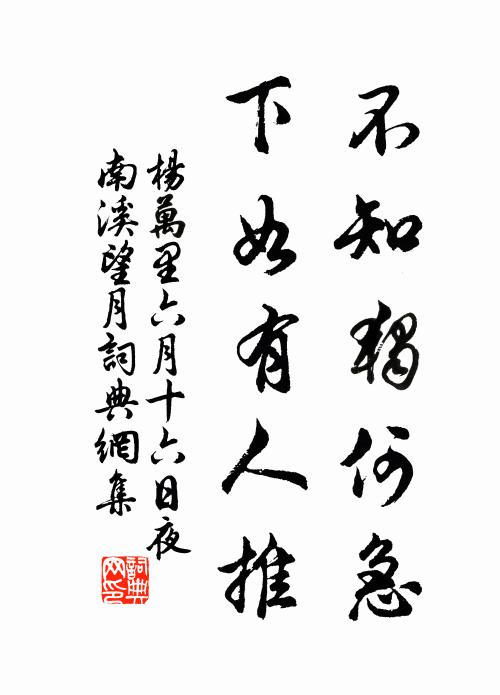 不知獨何急
下如有人推
楊萬里六月十六日夜
南溪望月詞典網集
詞典
网印